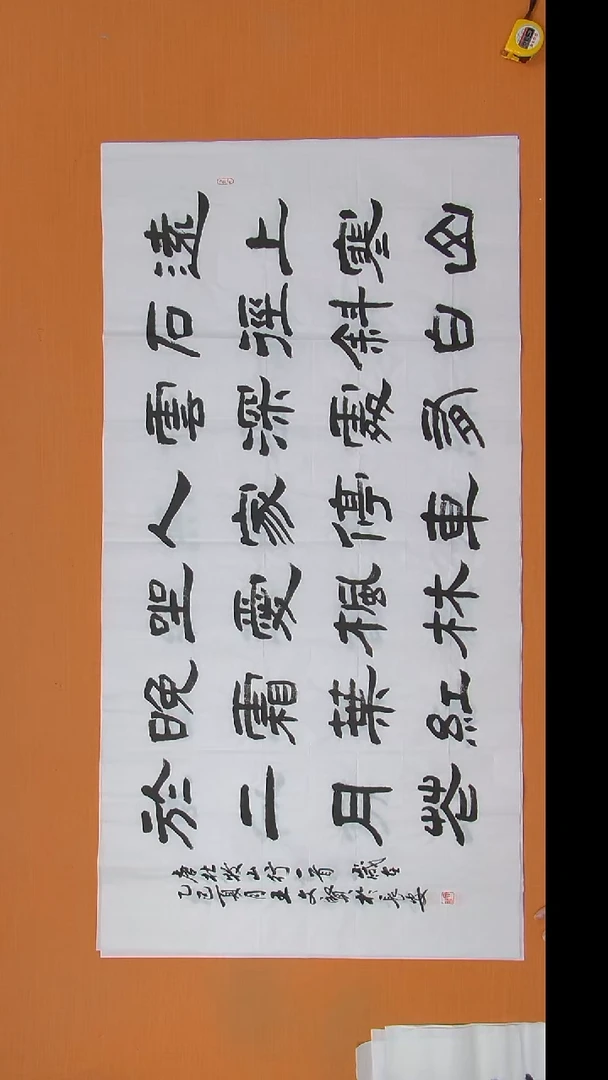 遠上寒山
石徑斜白
雲深處有
人家停車
坐愛楓林
晚霜葉紅
於二月花
唐杜牧山行一首 歲在
乙巳夏月王文於長安